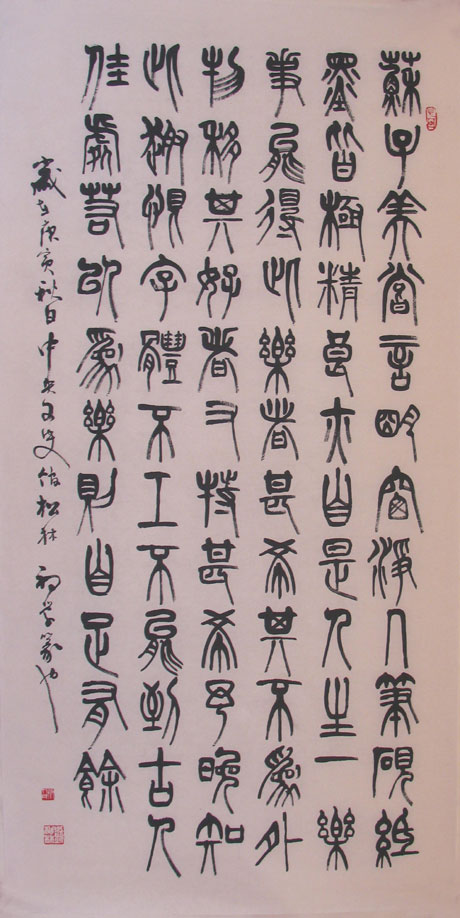 蘇子美嘗言明窗淨几筆硯紙
墨皆極精良亦自是人生一樂
事能得此樂者甚希其不為外
物移其好者又特甚希予晚知
此趣恨字體不工不能到古人
佳處若以為樂則自足有餘
歲在庚寅秋日中央文史館松林初学篆也